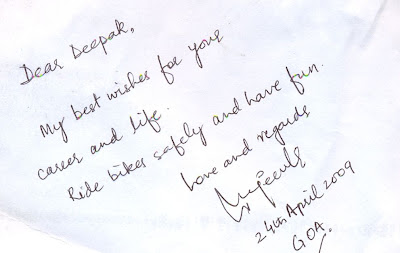 Dear Deepak,
My best wishes for your
career and life.
Ride bikes safely and have fun.
Love and regards
24th April 2009
GOA.